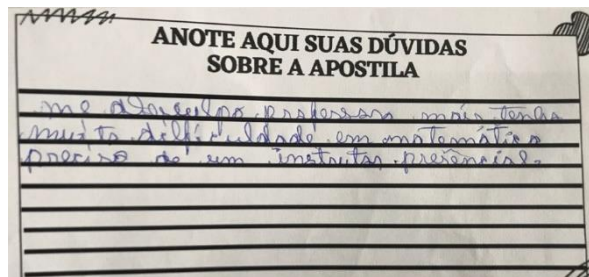 ANOTE AQUI SUAS DÚVIDAS
SOBRE A APOSTILA
me professora mais tenho
muito em matemática
preciso de um instrutor presencial.